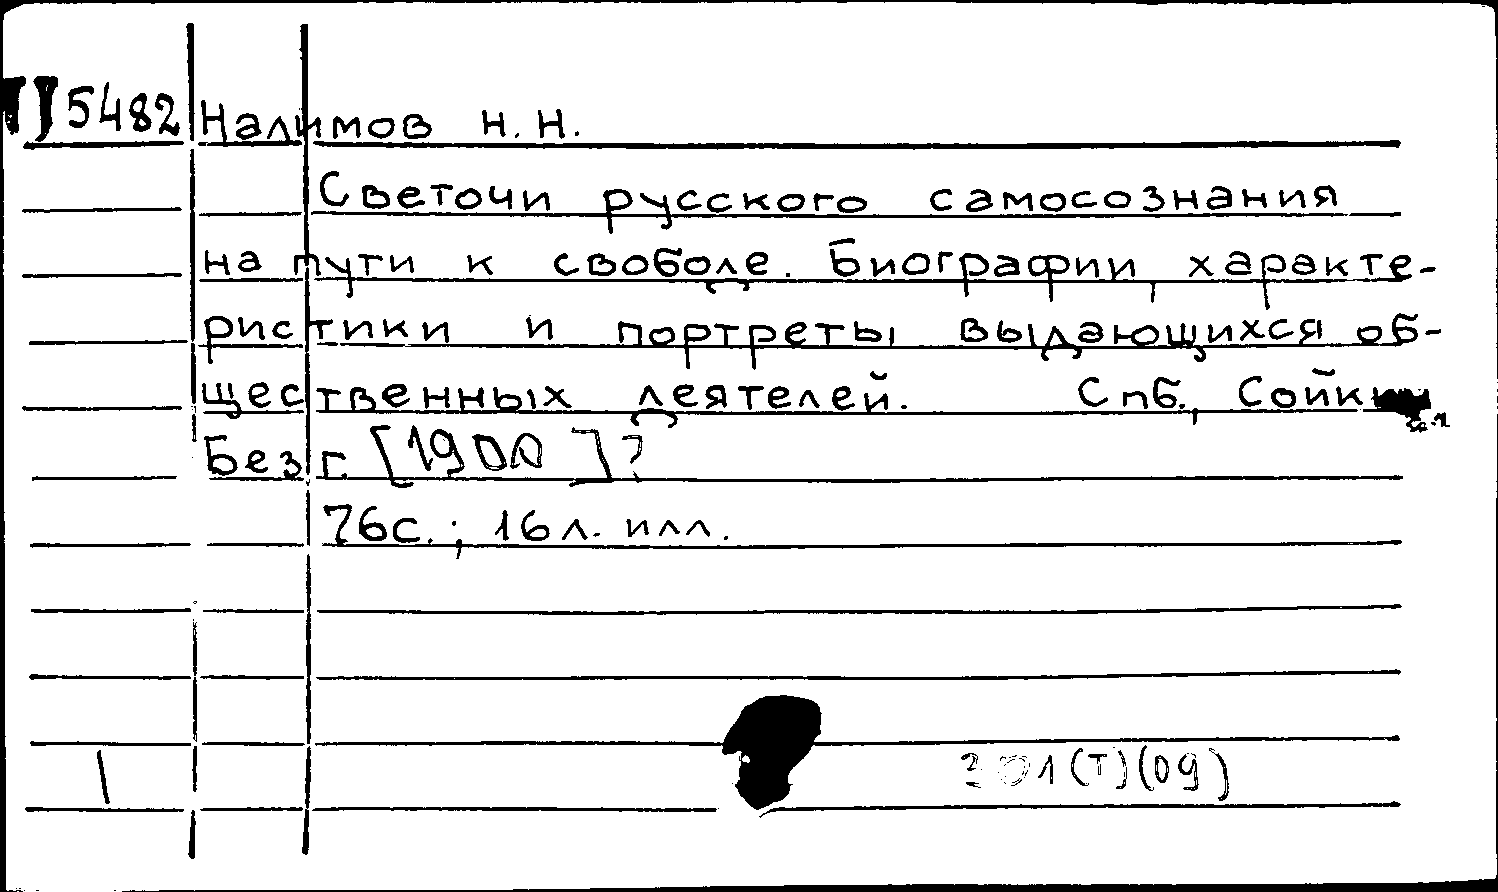 5482 Налимов Н. Н.
Светочи русского самосознания
на пути к свободе. Биографии, характе-
ристики и портреты выдающихся об-
щественных деятелей. Спб., 
Без г. [1900]?
76с.; 16 л. илл.